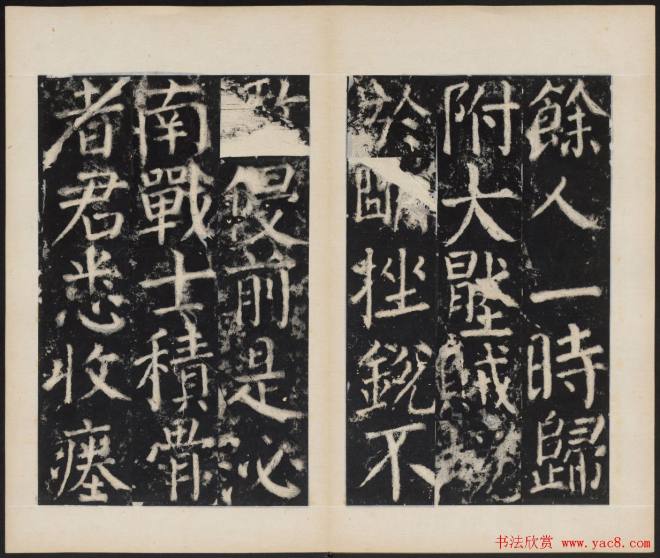 餘人一時歸
附大壓賊境
於挫銳不
敢侵前是泌
南戰士積骨
者君悉收瘞
书法欣赏 www.yac8.com